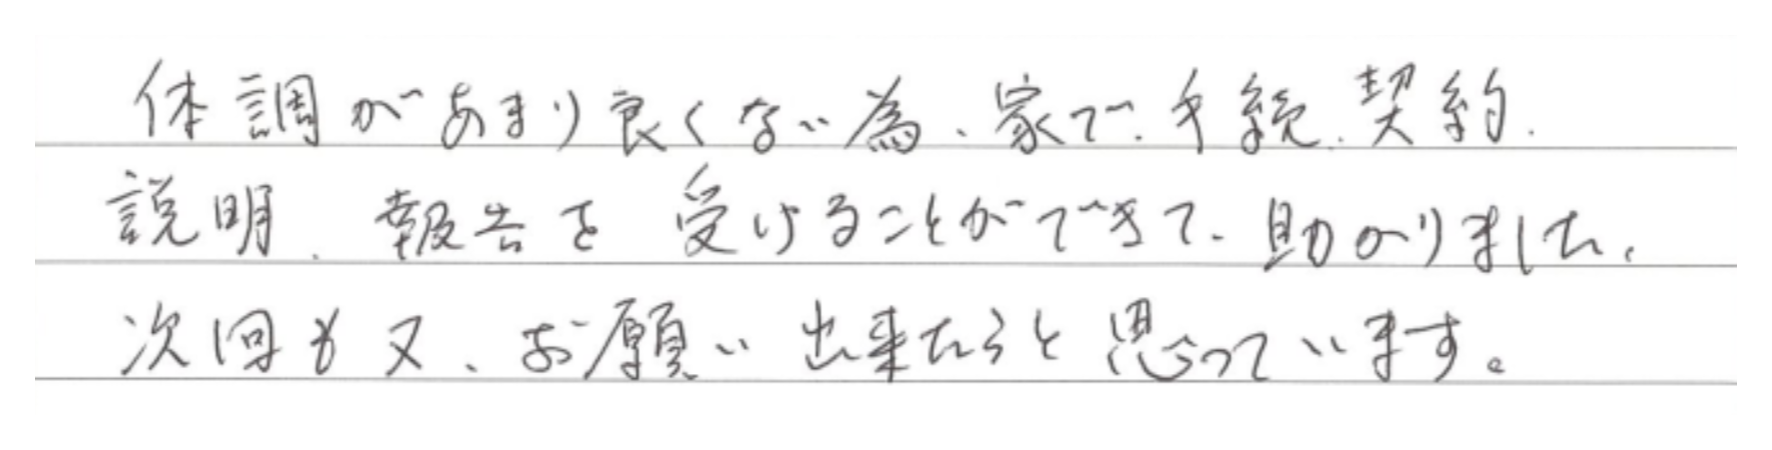 体調があまり良くない為、家で、手続、契約、
説明、報告を受けることができて、助かりました。
次回も又、お願い出来たらと思っています。